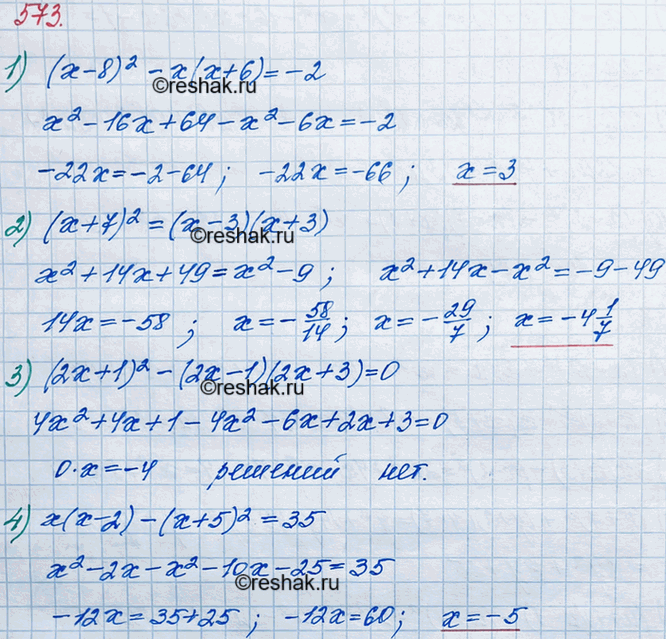 573.
1) (x-8)² - x(x+6) = -2
©reshak.ru
x² - 16x + 64 - x² - 6x = -2
-22x = -2 - 64; -22x = -66; x = 3
2) (x+7)² = (x-3)(x+3)
©reshak.ru
x² + 14x + 49 = x² - 9; x² + 14x - x² = -9 - 49
14x = -58; x = -58/14; x = -29/7; x = -4 1/7
3) (2x+1)² - (2x-1)(2x+3) = 0
©reshak.ru
4x² + 4x + 1 - 4x² - 6x + 2x + 3 = 0
0·x = -4 решений нет.
4) x(x-2) - (x+5)² = 35
x² - 2x - x² - 10x - 25 = 35
©reshak.ru
-12x = 35 + 25; -12x = 60; x = -5